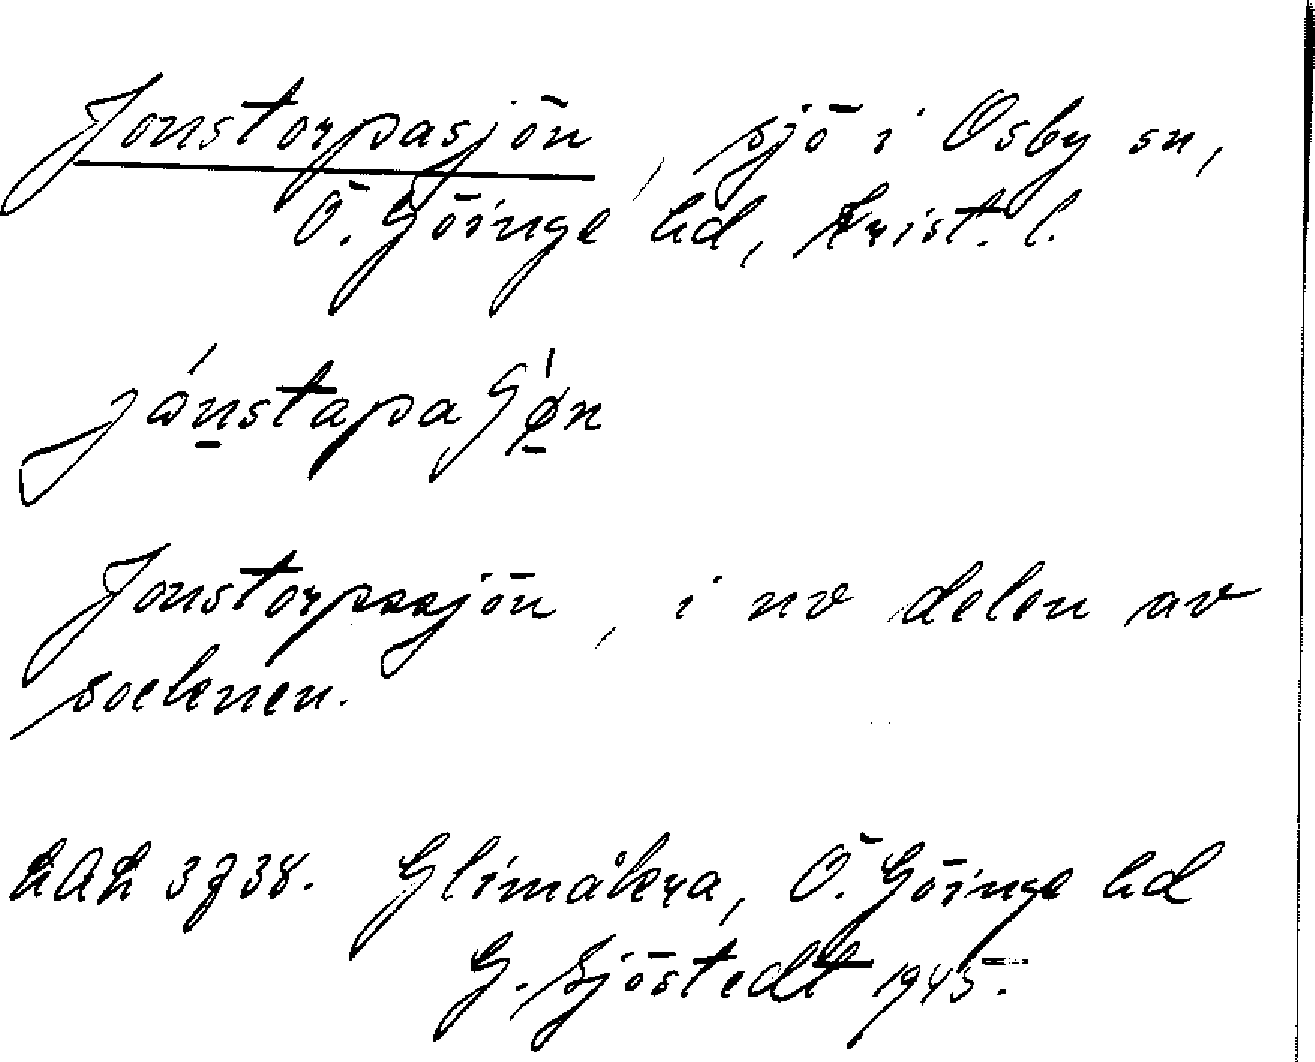 Jonstorpasjön, sjö i Osby sn,
Ö. Göinge hd, Krist. l.
Jonstorpasjön, i nv delen av
socknen.
Glimåkra, Ö. Göinge hd
G. Sjöstedt 1945.